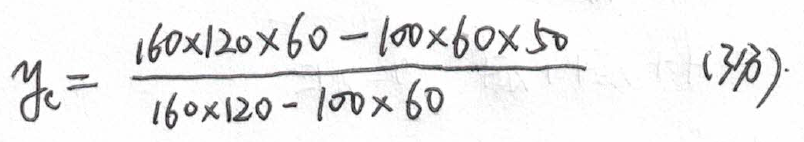 y_c = \frac{160×120×60-100×60×50}{160×120-100×60} (3分).